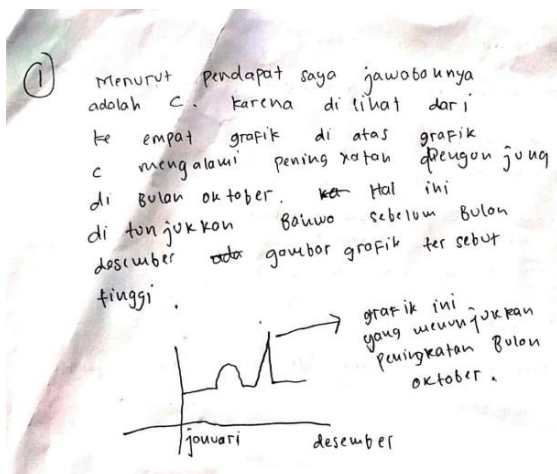 1
Menurut pendapat saya jawabannya
adalah C. Karena di lihat dari
ke empat grafik di atas grafik
c mengalami peningkatan pengunjung
di Bulan oktober. Hal ini
di tunjukkan Bahwa sebelum Bulan
desember gambar grafik ter sebut
tinggi.
grafik ini
yang menunjukkan
peningkatan Bulan
oktober.
januari desember